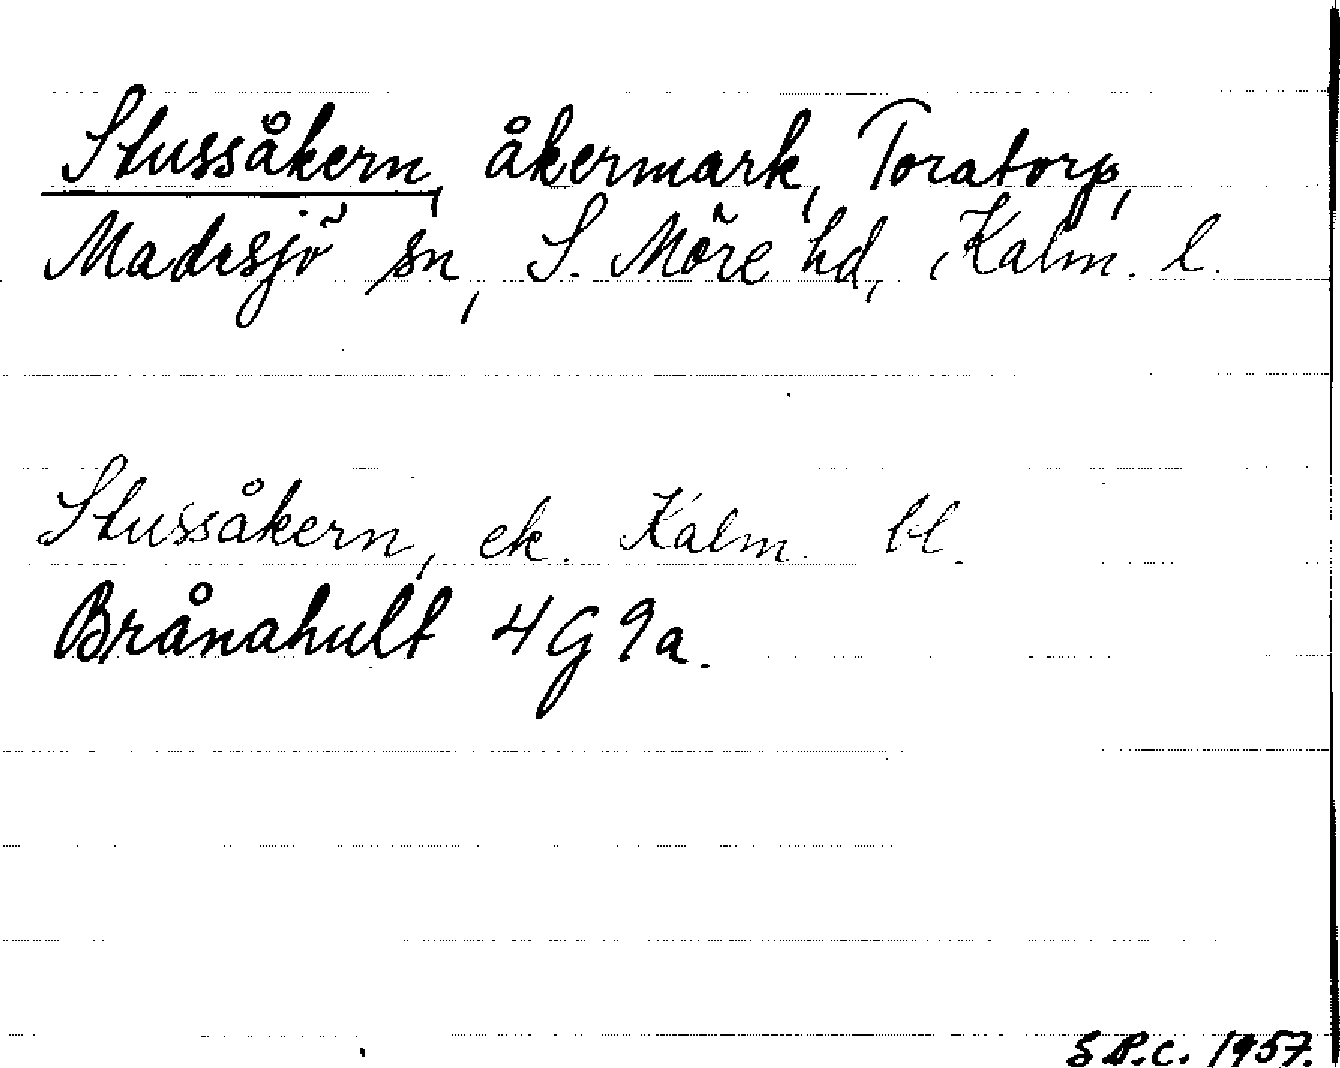 Stussåkern, åkermark, Toratorp,
Madesjö sn, S. Möre hd, Kalm. l.
Stussåkern, ek. Kalm. bl.
Brånahult 4G 9a.
S.P.C. 1957.